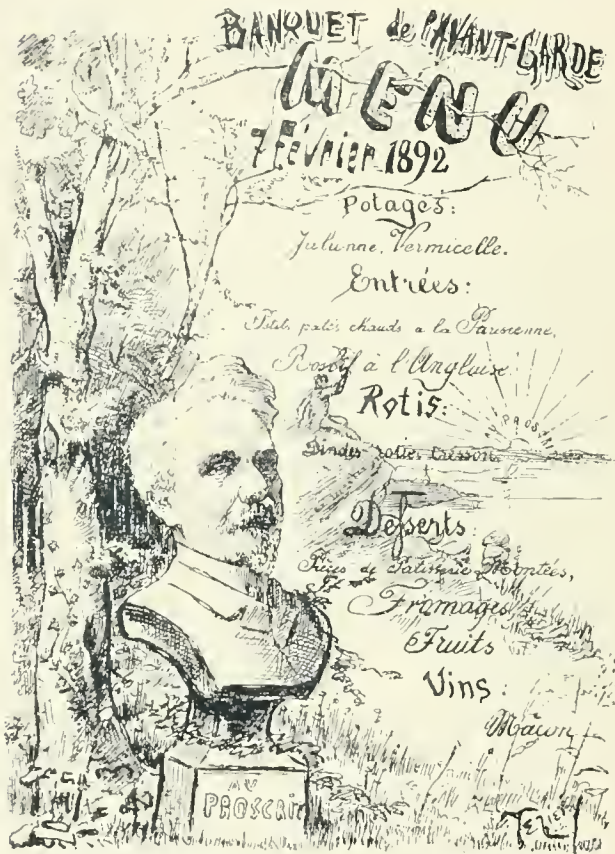 BANQUET de l'AVANT-GARDE
MENU
7 Février 1892
Potages:
Julienne. Vermicelle.
Entrées:
Petits patés chauds a la Parisienne,
Rosbif à l'Anglaise.
Rotis:
Dindes rotie, Cresson.
Desserts
Pièces de Patisserie Montées,
Fromages
Fruits
Vins:
Mâcon
AU
PROSCRIT